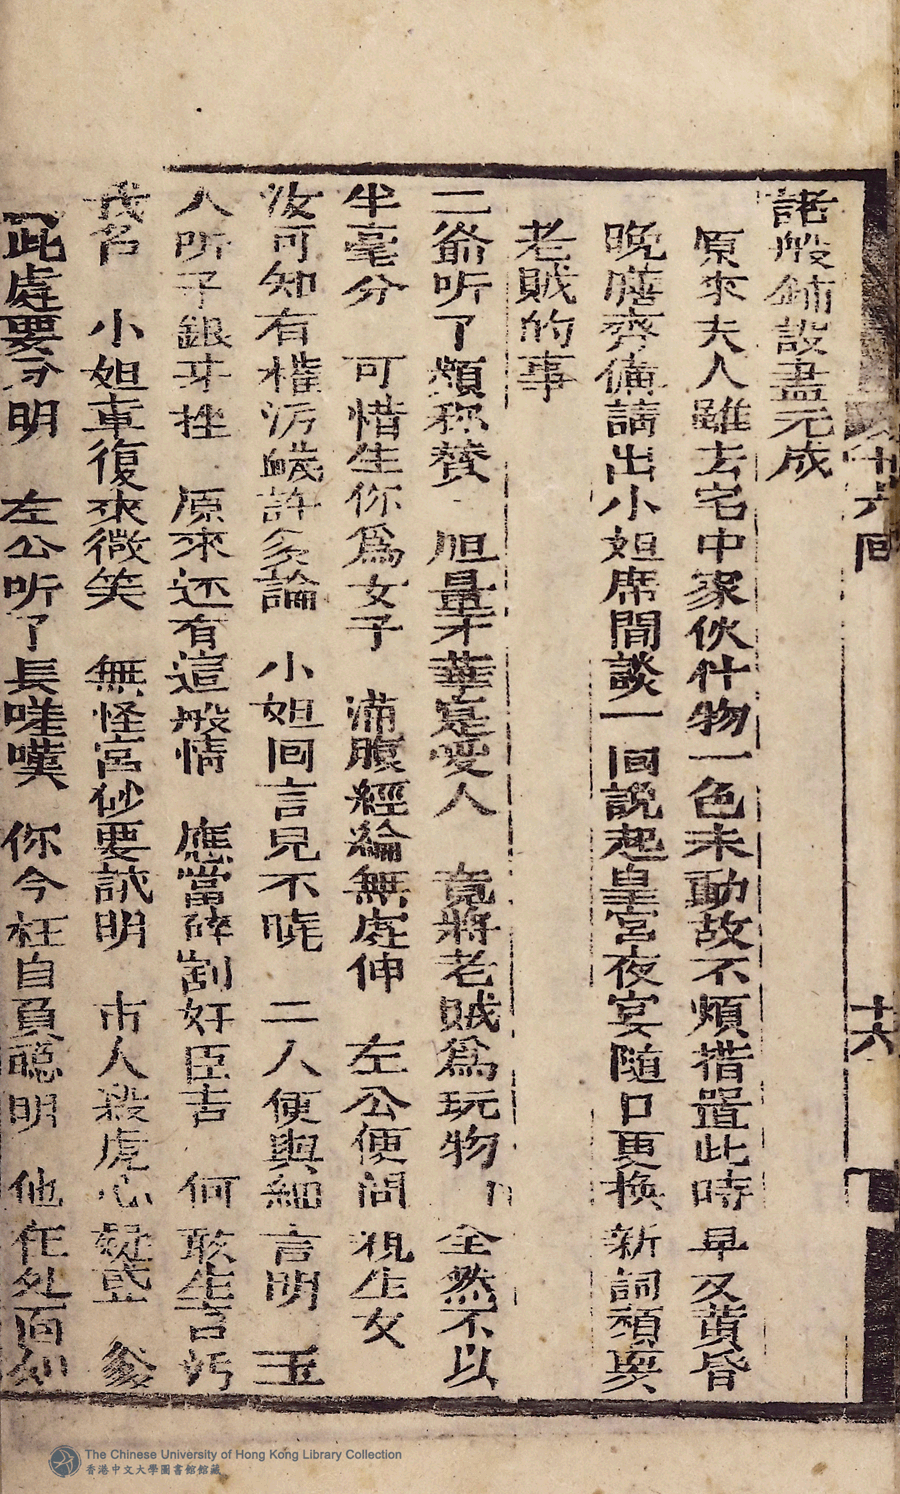 十六回
十六
諸般鋪設盡元成
原來夫人雖去宅中家伙什物一色未動故不煩措置此時早又黃昏
晚膳齊備請出小姐席間談一回說起皇宮夜宴隨口更換新詞頑耍
老賊的事
二爺听了頻称賛 胆量才華寔愛人 竟將老賊爲玩物 全然不以
半毫分 可惜生你爲女子 滿腹經綸無處伸 左公便問親生女
汝可知有權汚衊許多論 小姐回言見不曉 二人便與細言明 玉
人听了銀牙挫 原來还有這般情 應當碎割奸臣舌 何敢生言汚
我名 小姐車復來微笑 無怪宮砂要試明 市人殺虎心疑惑 參
此處要分明 左公听了長嗟嘆 你今枉自負聰明 他在处面如
The Chinese University of Hong Kong Library Collection
香港中文大學圖書館館藏